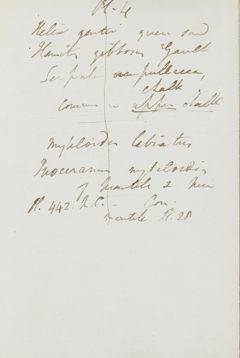 Pl. 4
Helix gentii green sand
Hamites gibbosus Gault
Serpula ampullacea
chalk
common in upper chalk
Mytiloides labiatus
Inoceramus mytiloides
of Mantell &
Pl. 442. M.C. - Con.
Mantell Pl. 28